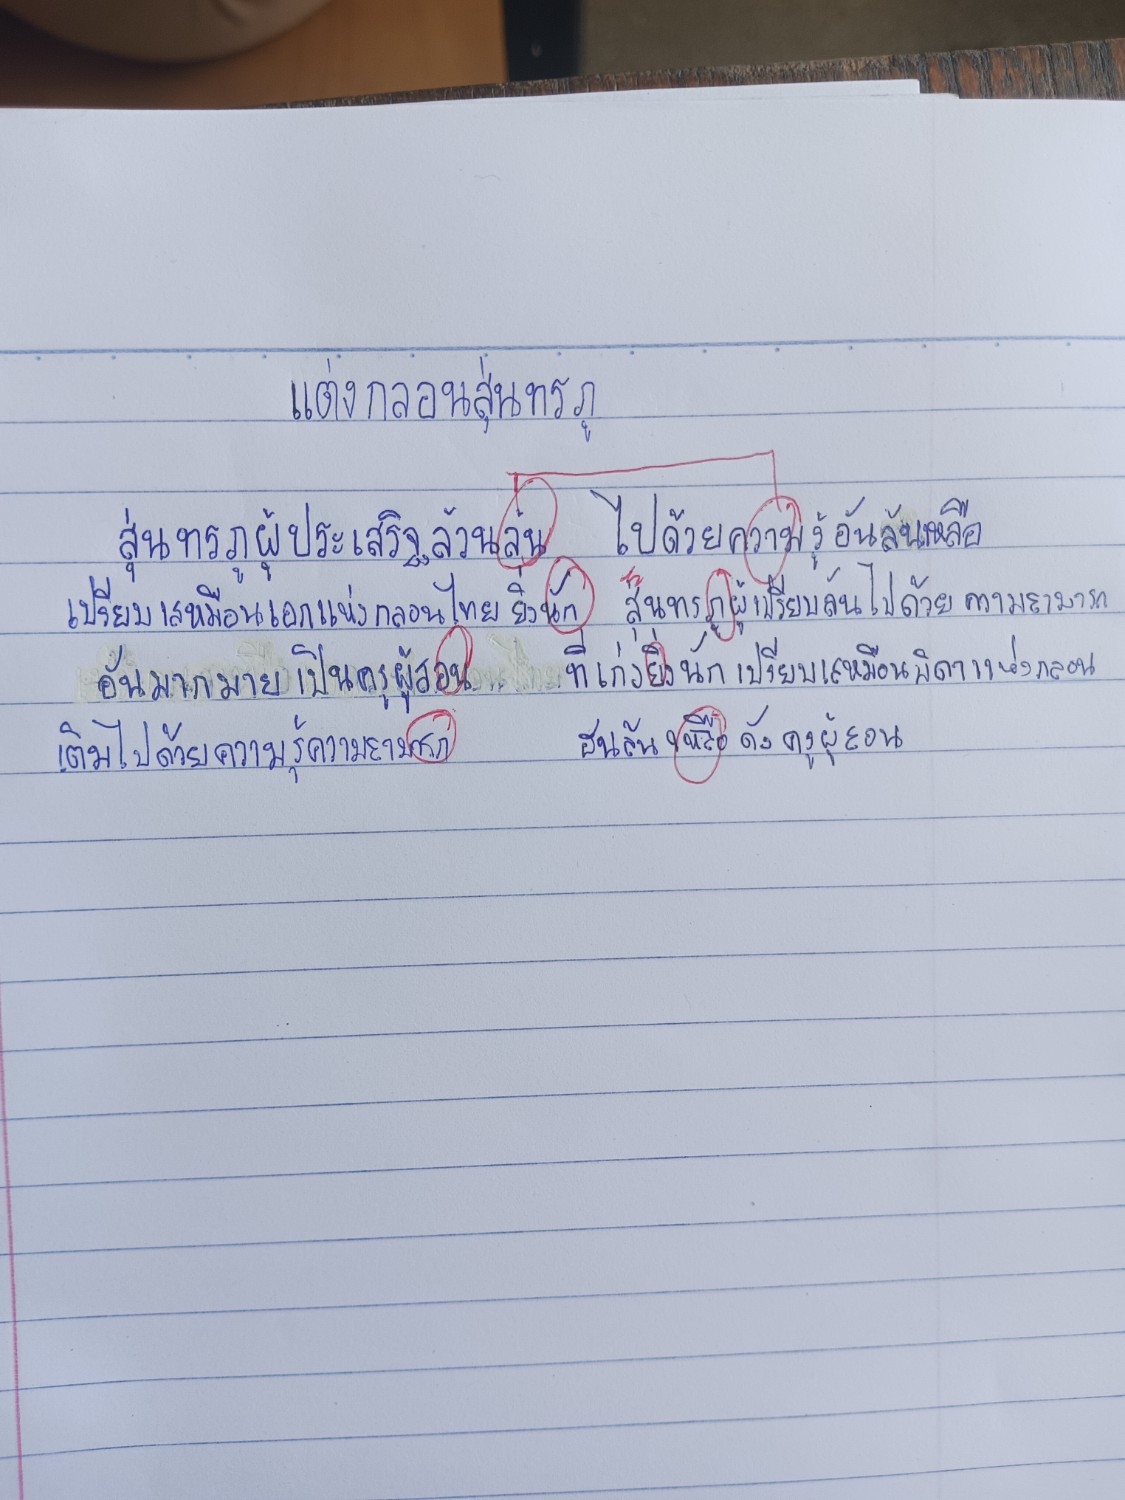 แต่งกลอนสุ่นทรภู
สุ่นทรภูผู้ประเสริฐล้วนล้น ไปด้วยความรู้อันล้นเหลือ
เปรียบเสหมือนเอกแห่งกลอนไทยยิ่งนัก สุ้นทรภูผู้เปรียบล้นไปด้วยความสามารถ
อันมากมายเป็นครูผู้สอน ที่เก่งยิ่งนักเปรียบเสหมือนบิดาแห่งกลอน
เติมไปด้วยความรู้ความสามารถ ล้นเหลือดังครูผู้สอน